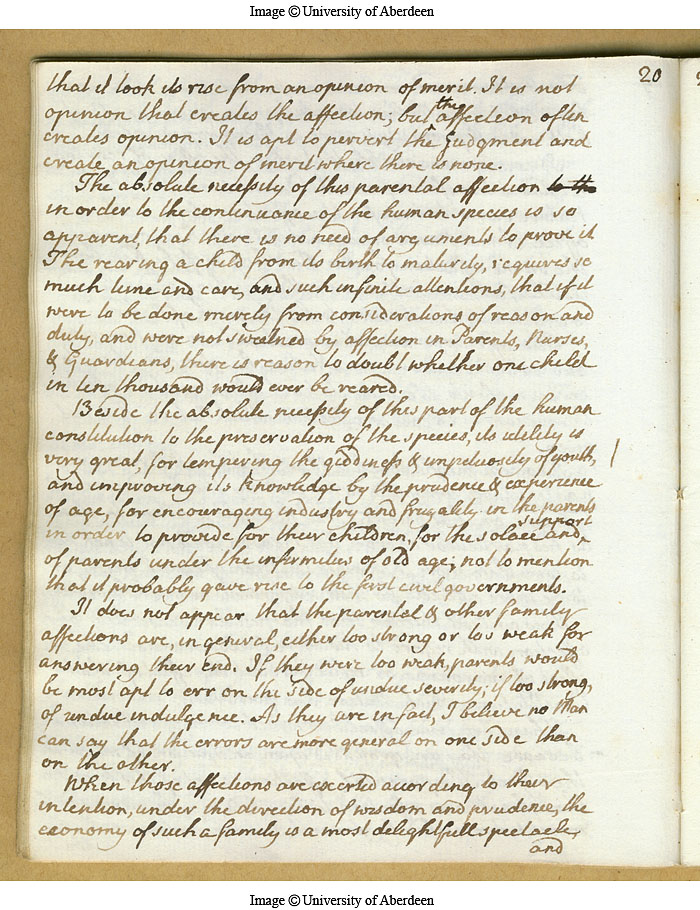 Image © University of Aberdeen
20
that it took its rise from an opinion of merit. It is not
opinion that creates the affection; but the affection often
creates opinion. It is apt to pervert the Judgment and
create an opinion of merit where there is none.
The absolute necessity of this parental affection to the
in order to the continuance of the human species is so
apparent, that there is no need of arguments to prove it
The rearing a child from its birth to maturity, requires so
much time and care, and such infinite attentions, that if it
were to be done merely from considerations of reason and
duty, and were not sweetned by affection in Parents, Nurses,
& Guardians, there is reason to doubt whether one child
in ten thousand would ever be reared.
Beside the absolute necessity of this part of the human
constitution to the preservation of the species, its utility is
very great, for tempering the giddiness & impetuosity of youth,
and improving its knowledge by the prudence & experience
of age, for encouraging industry and frugality in the parents
in order to provide for their children, for the solace and support
of parents under the infirmities of old age; not to mention
that it probably gave rise to the first civil governments.
It does not appear that the parental & other family
affections are, in general, either too strong or too weak for
answering their end. If they were too weak, parents would
be most apt to err on the side of undue severity; if too strong,
of undue indulgence. As they are in fact, I believe no Man
can say that the errors are more general on one side than
on the other.
When those affections are exerted according to their
intention, under the direction of wisdom and prudence, the
economy of such a family is a most delightfull spectacle,
and
Image © University of Aberdeen